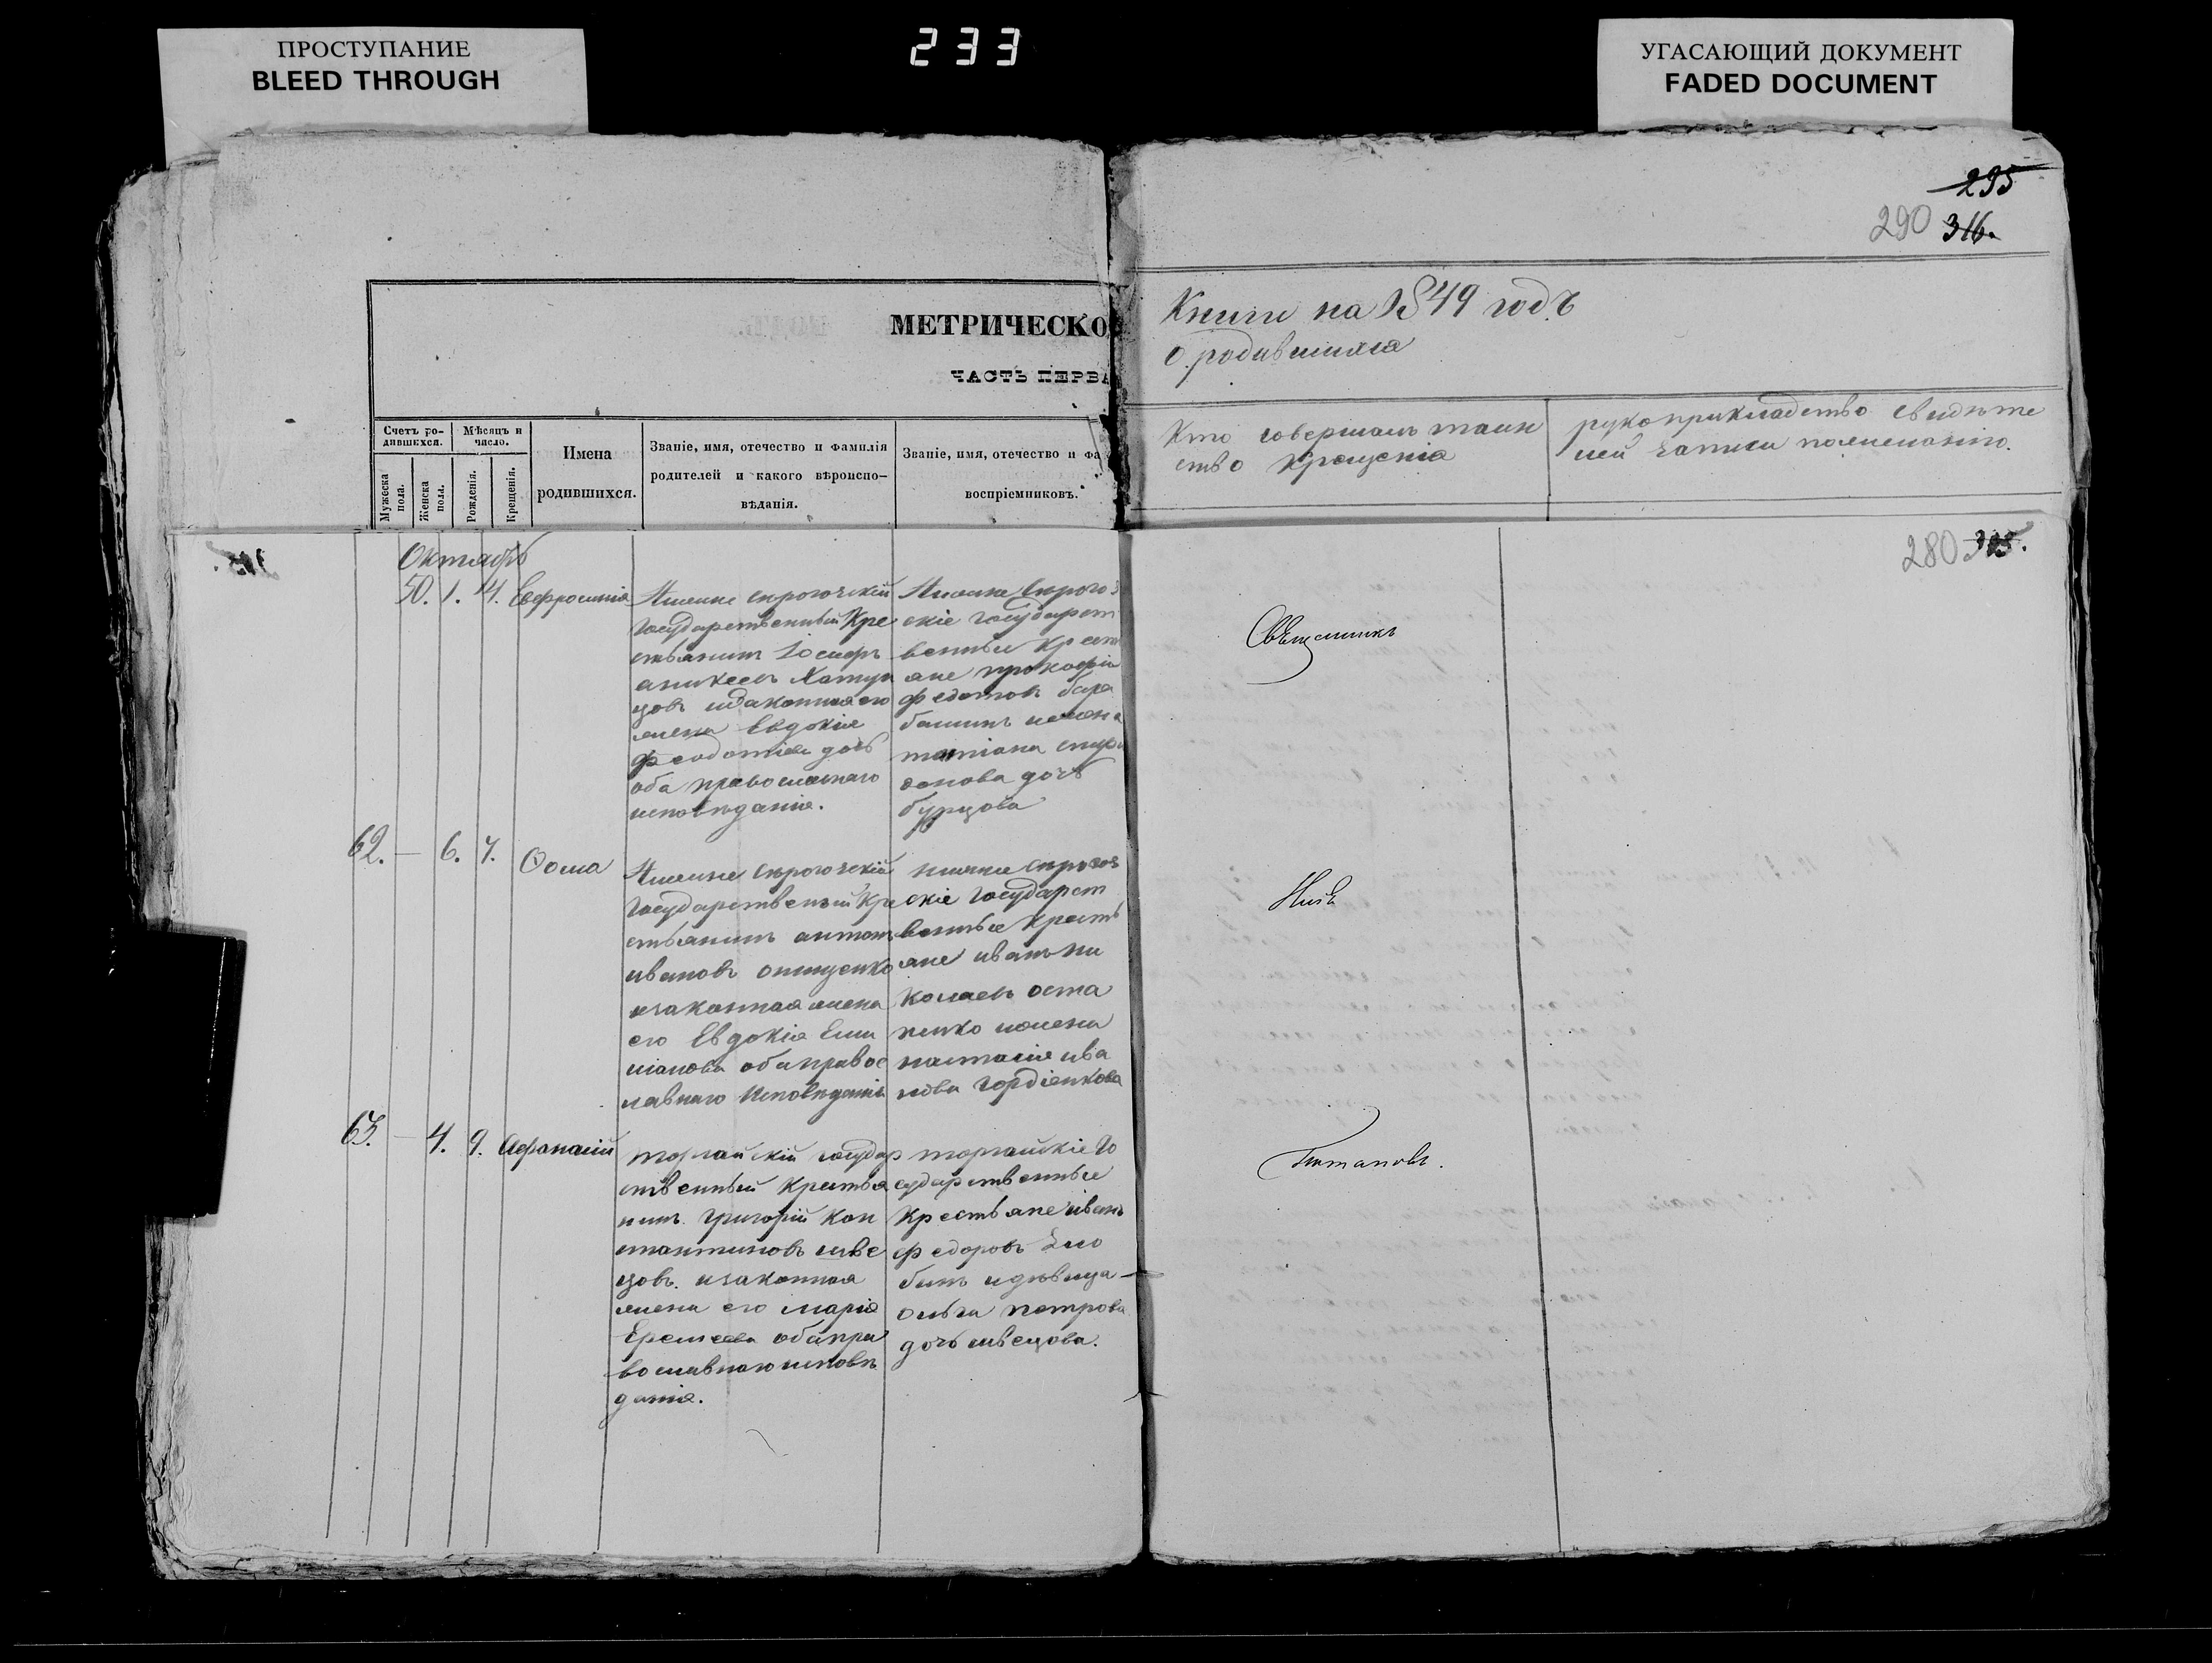 ПРОСТУПАНИЕ
BLEED THROUGH
233
УГАСАЮЩИЙ ДОКУМЕНТ
FADED DOCUMENT
295
290 316.
МЕТРИЧЕСКО
ЧАСТЬ ПЕРВА
Книги на 1849 годъ
о родившихся
Счетъ ро-
дившихся.
Мужеска
пола.
Женска
пола.
Мѣсяцъ и
число.
Рожденія.
Крещенія.
Имена
родившихся.
Званіе, имя, отечество и фамилія
родителей и какого вѣроиспо-
вѣданія.
Званіе, имя, отечество и фа
воспріемниковъ.
Кто совершалъ таин
ство крещенія
рукоприкладство свидѣте
лей записи пожеланію.
280 315.
Октябрь
50. 1. 4. Евфросинія
Нижне серогозскій
Государственный Кре
стьянинъ Іосифъ
аникеевъ
изаконная его
жена Евдокія
Феодотіева дочь
оба православнаго
исповѣданія.
Нижне Серогоз
скіе государст
венные Крест
яне прокофій
федотовъ бара
башинъ ижена
татіана спири
донова дочь
бурцова
62. — 6. 7. Ѳома
Нижне Серогозскій
Государственный Кре
стьянинъ антонъ
ивановъ онищенко
изаконная жена
его Евдокія Еми
ліанова оба правос
лавнаго Исповѣданія
нижне Серогоз
скіе Государст
венные Кресть
яне иванъ ни
колаевъ оста
пенко ижена
настасія ива
нова Гордіенкова
63. — 4. 9. Афанасій
торгайскій государ
ственный Крестья
нинъ Григорій Кон
стантиновъ шве
цовъ изаконная
жена его марія
Еремеева оба пра
вославнаго исповѣ
данія.
торгайскіе Го
сударственные
Крестьяне иванъ
федоровъ
идѣвица
ольга петрова
дочь швецова.
Священникъ
Потаповъ.